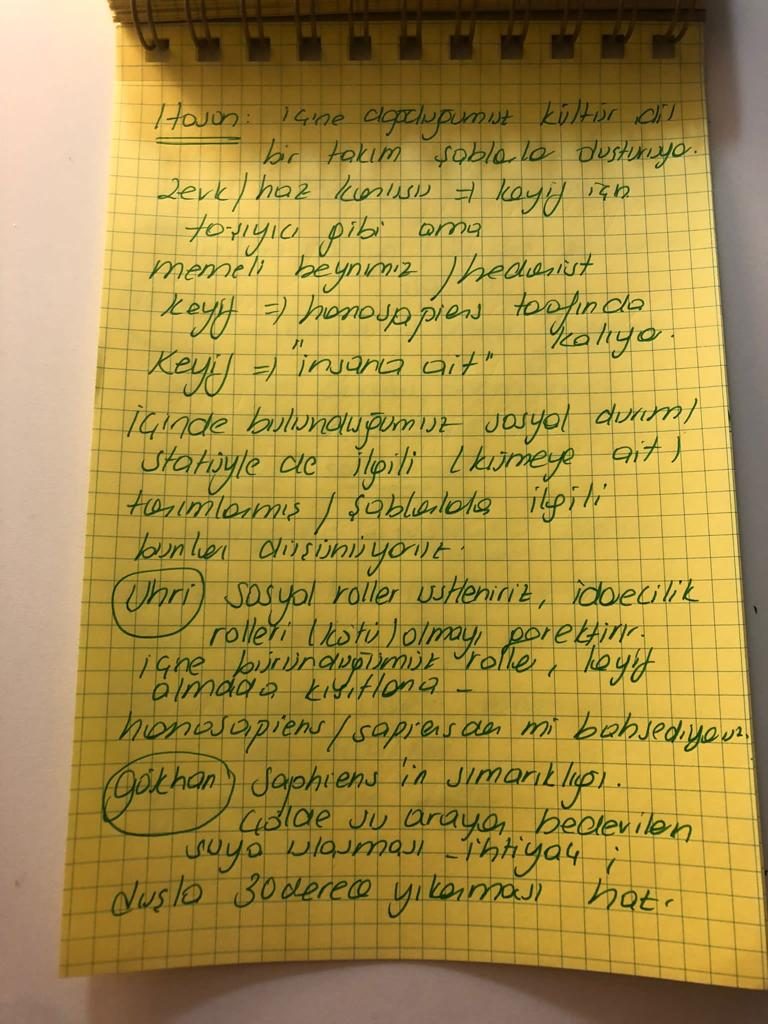 Hasan: içine doğduğumuz kültür dil
bir takım şablonla oluşturuyo.
Zevk / haz konusu => keyif için
taşıyıcı gibi ama
memeli beynimiz / hedonist
Keyif => homosapiens tarafında
kalıyo.
Keyif => "insana ait"
içinde bulunduğumuz sosyal durum /
statüyle de ilgili (kümeye ait)
tanımlanmış / şablonlarla ilgili
bunları düşünüyoruz.
Uhri sosyal roller üstleniriz, idarecilik
rolleri (kötü) olmayı gerektirir.
içine büründüğümüz roller, keyif
almada kısıtlama -
homosapiens / sapiensden mi bahsediyoruz.
Gökhan Saphiens'in şımarıklığı.
Çölde su arayan bedevilerin
suya ulaşması - ihtiyaç ;
duşta 30 derece yıkanması haz.